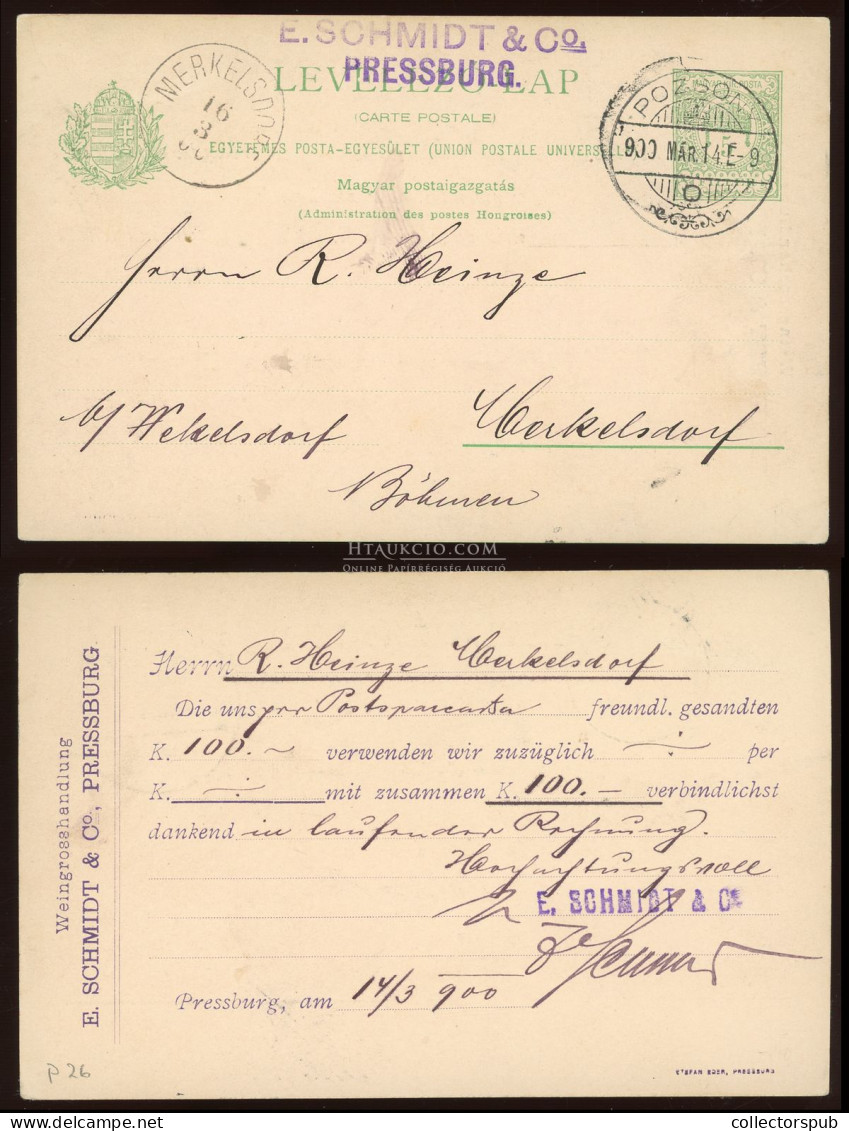 E. SCHMIDT & Co.
PRESSBURG.
LEVELEZŐ-LAP
(CARTE POSTALE)
EGYETEMES POSTA-EGYESÜLET (UNION POSTALE UNIVERSELLE)
Magyar postaigazgatás
(Administration des postes Hongroises)
MERKELSDORF
16
3
POZSONY
900 MÁR.14.E-9
Herrn R. Heinze
b/ Wekelsdorf Merkelsdorf
Böhmen
HTAUKCIO.COM
ONLINE PAPÍRRÉGISÉG AUKCIÓ
Weingrosshandlung
E. SCHMIDT & Co., PRESSBURG
Herrn R. Heinze Merkelsdorf
Die uns per Postsparcassa freundl. gesandten
K. 100.— verwenden wir zuzüglich ÷ per
K. ÷ mit zusammen K. 100.— verbindlichst
dankend in laufender Rechnung.
Hochachtungsvoll
E. SCHMIDT & Co
Pressburg, am 14/3 900
P 26
STEFAN EDER, PRESSBURG
collectorspub